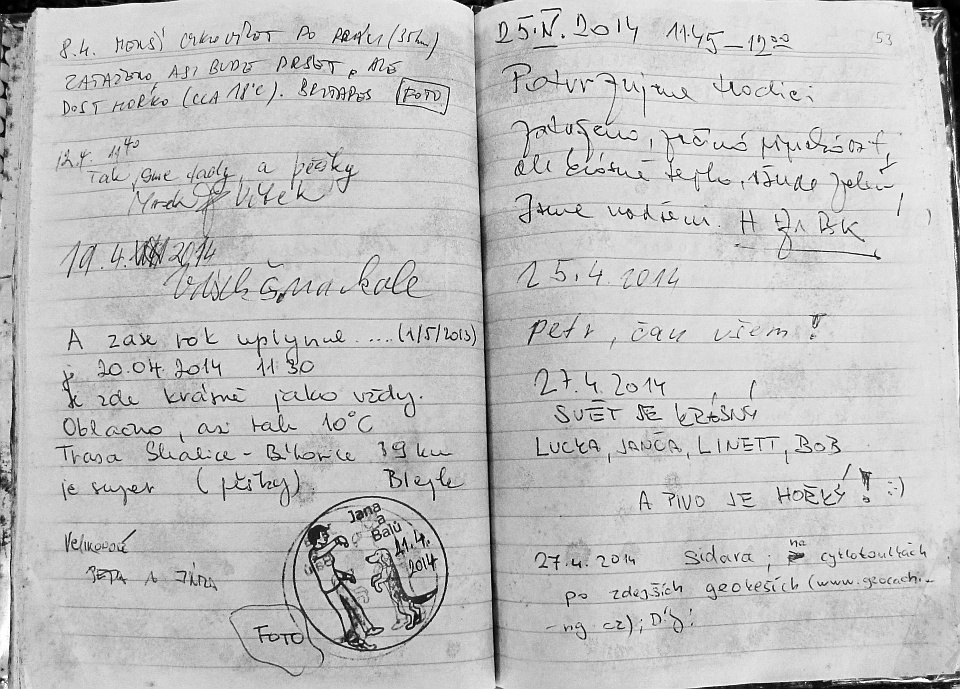 8.4. MENŠÍ PO PRÁCI (35km)
ZATAŽENO, ASI BUDE PRŠET, ALE
DOST HORKO (CCA 18°C). FOTO
12.4. 11 40
Tak, sme dady, a pěšky
Vítek
19.4. 2014
A zase rok uplynul .... (1/5/2013)
20.04.2014 11 30
Je zde krásně jako vždy.
Oblačno, asi tak 10°C
Trasa Skalice - Bílovice 39 km
je super (pěšky)
Velikonoce
Jana
a
Balú
21.4.
2014
FOTO
53
25.IV.2014 11:45 - 12 00
Potvrzujeme
zataženo,
ale krásně teplo, všude zeleň!
Jsme nadšeni.
25.4.2014
Petr, čau všem!
27.4.2014
SVĚT JE KRÁSNÝ!
LUCKA, JANČA, LINETT, BOB
A PIVO JE HOŘKÝ! :-)
27.4.2014 Sidara, na cyklotoulkách
po zdejších geokeších (www.geocachi-
-ng.cz); Díky!